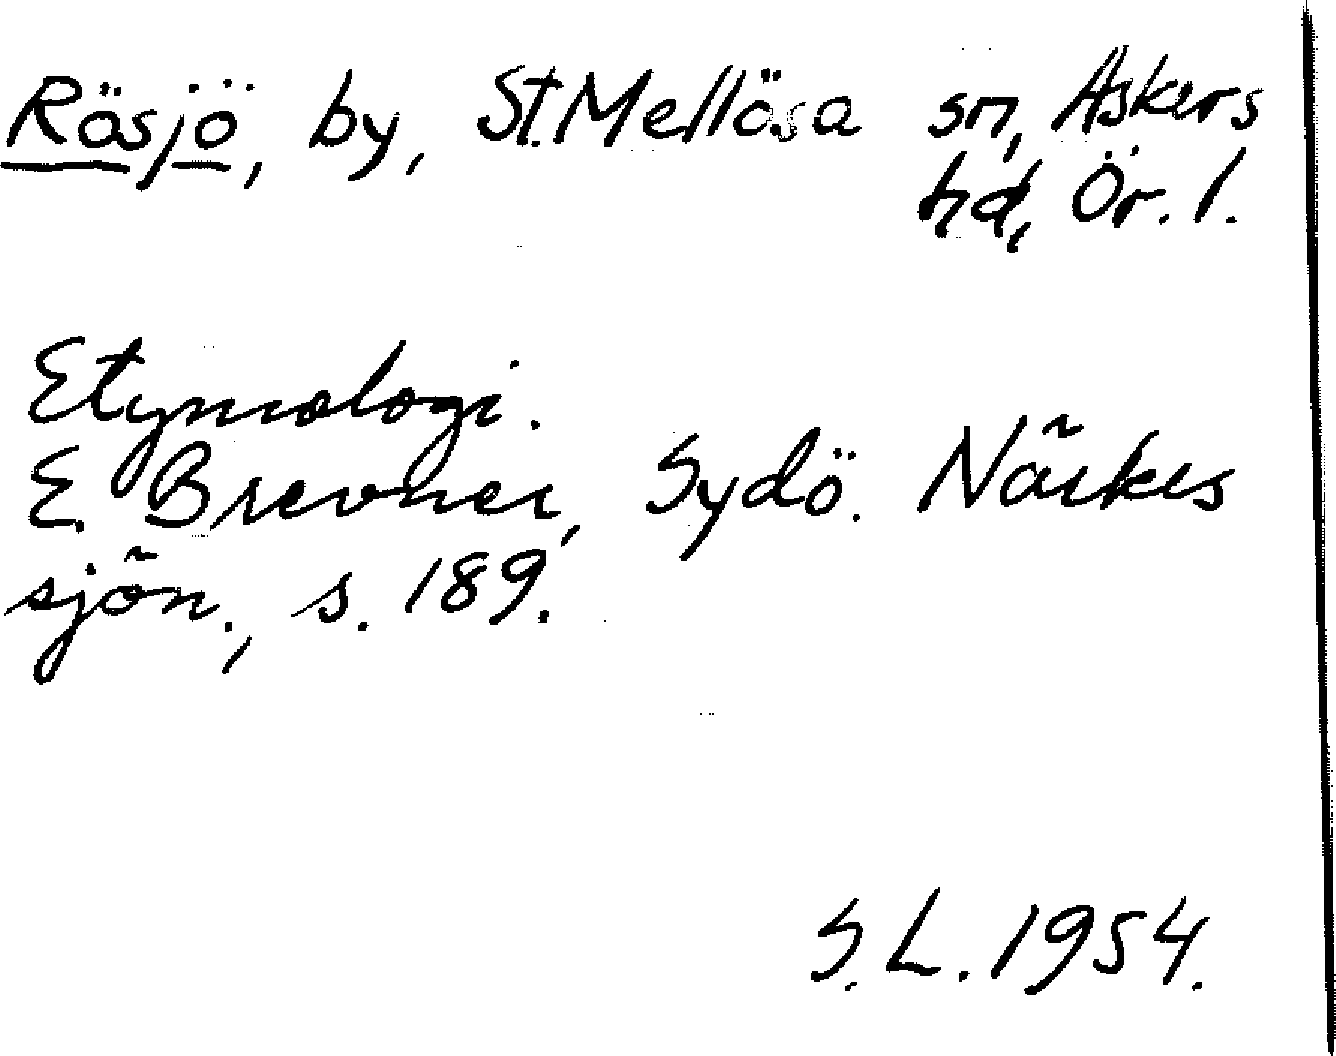 Räsjö, by, St. Mellösa sn, Askers
hd, Ör. l.
Etymologi.
E. Brevner, Sydö. Närkes
sjön., s. 189.
S. L. 1954.